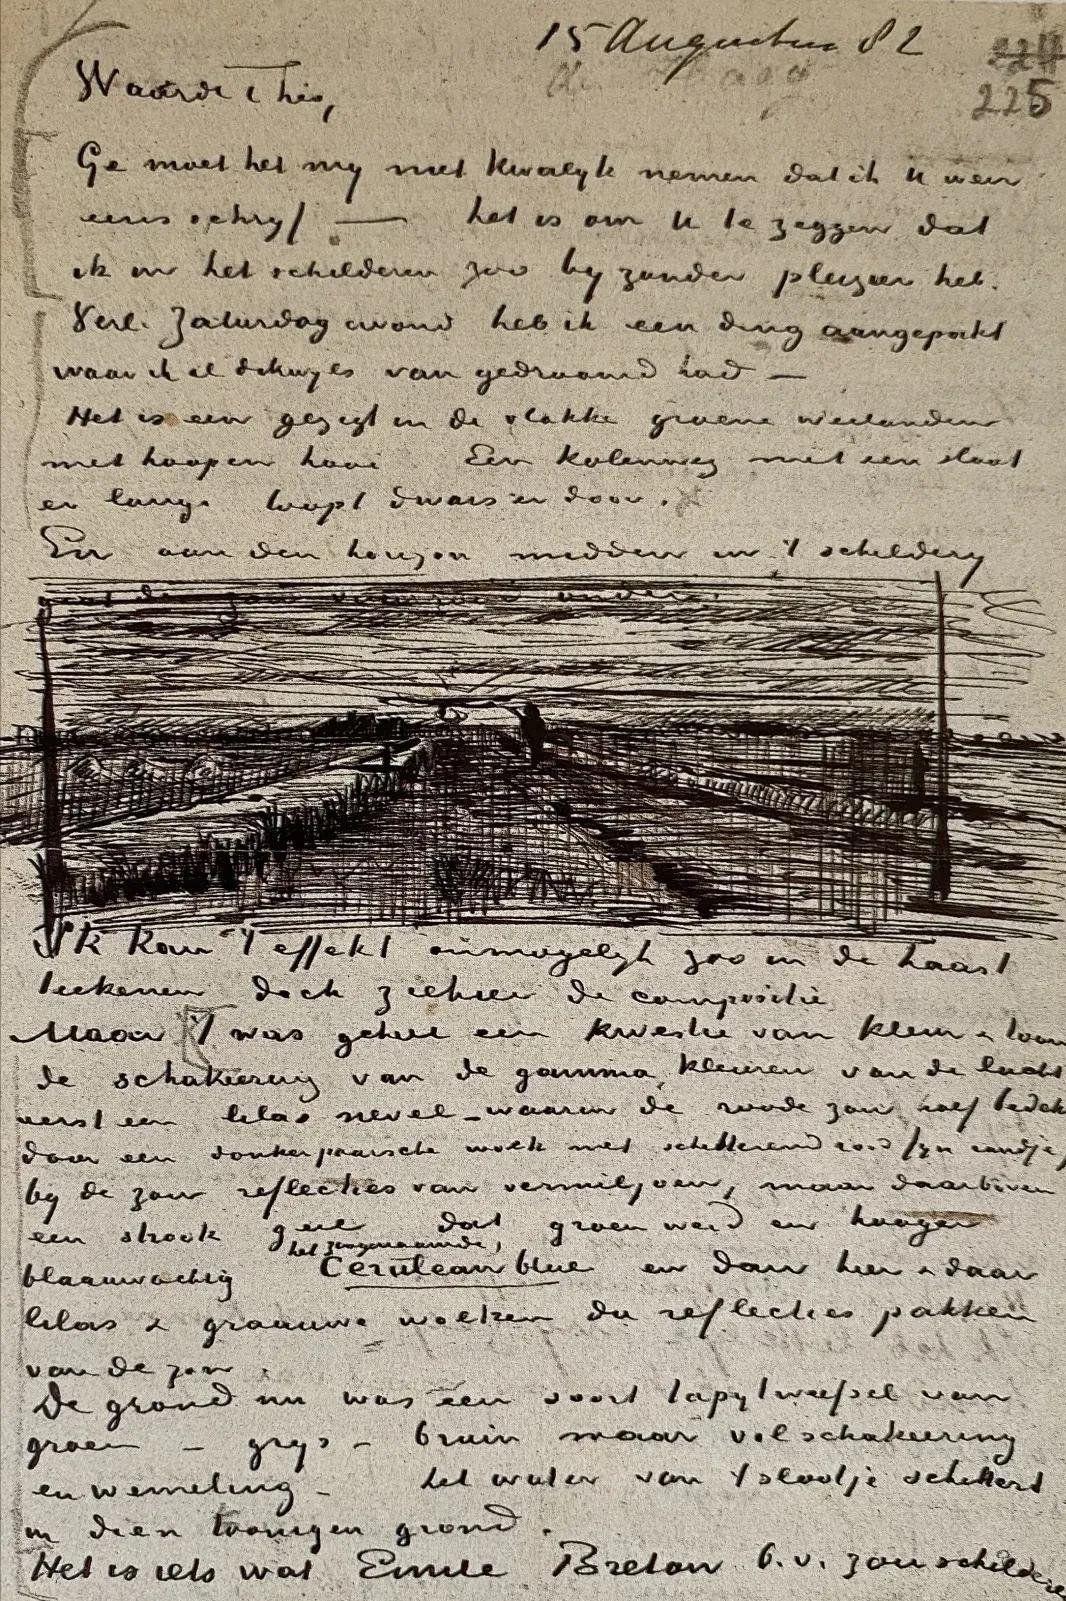 15 Augustus 82
224
225
Waarde Theo,
Ge moet het my niet kwalyk nemen dat ik U weer
eens schryf — het is om U te zeggen dat
ik in het schilderen zoo byzonder pleizier heb.
Verl. Zaturdag avond heb ik een ding aangepakt
waar ik al dikwyls van gedroomd had —
Het is een gezigt in de vlakke groene weilanden
met hoopen hooi Een kolenweg met een sloot
er langs loopt dwars er door.
En aan den horizon midden in 't schildery
gaat de zon vuurrood onder.
Ik kan 't effekt onmogelyk zoo in de haast
teekenen doch ziehier de compositie
Maar 't was geheel een kwestie van kleur & toon
de schakeering van de gamma kleuren van de lucht
eerst een lilas nevel – waarin de roode zon half bedekt
door een donker paarsche wolk met schitterend rood fyn randje
by de zon reflecties van vermiljoen, maar daarboven
een strook geel dat groen werd en hooger
het zoogenaamde,
blaauwachtig Cerulean blue en dan hier & daar
lilas & graauwe wolken die reflecties pakken
van de zon.
De grond nu was een soort tapytweefsel van
groen – grys – bruin maar vol schakeering
en wemeling – het water van 't slootje schittert
in dien toonigen grond.
Het is iets wat Emile Breton b.v. zou schilderen